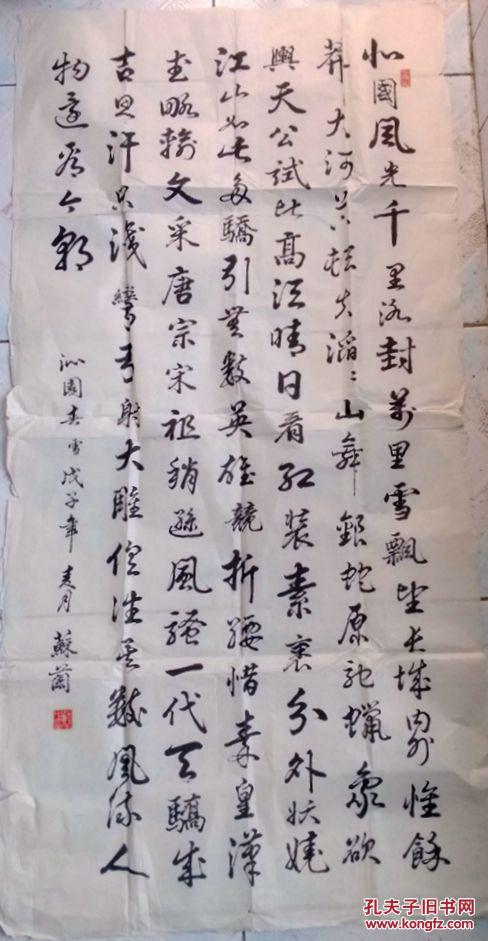 北國風光千里冰封萬里雪飄望長城內外惟餘
莽大河上下頓失滔〻山舞銀蛇原馳蠟象欲
與天公試比高須晴日看紅裝素裹分外妖嬈
江山如此多驕引無數英雄競折腰惜秦皇漢
武略輸文采唐宗宋祖稍遜風騷一代天驕成
吉思汗只識彎弓射大雕俱往矣數風流人
物還看今朝
沁園春雪戊子年月蘇蘭
孔夫子旧书网